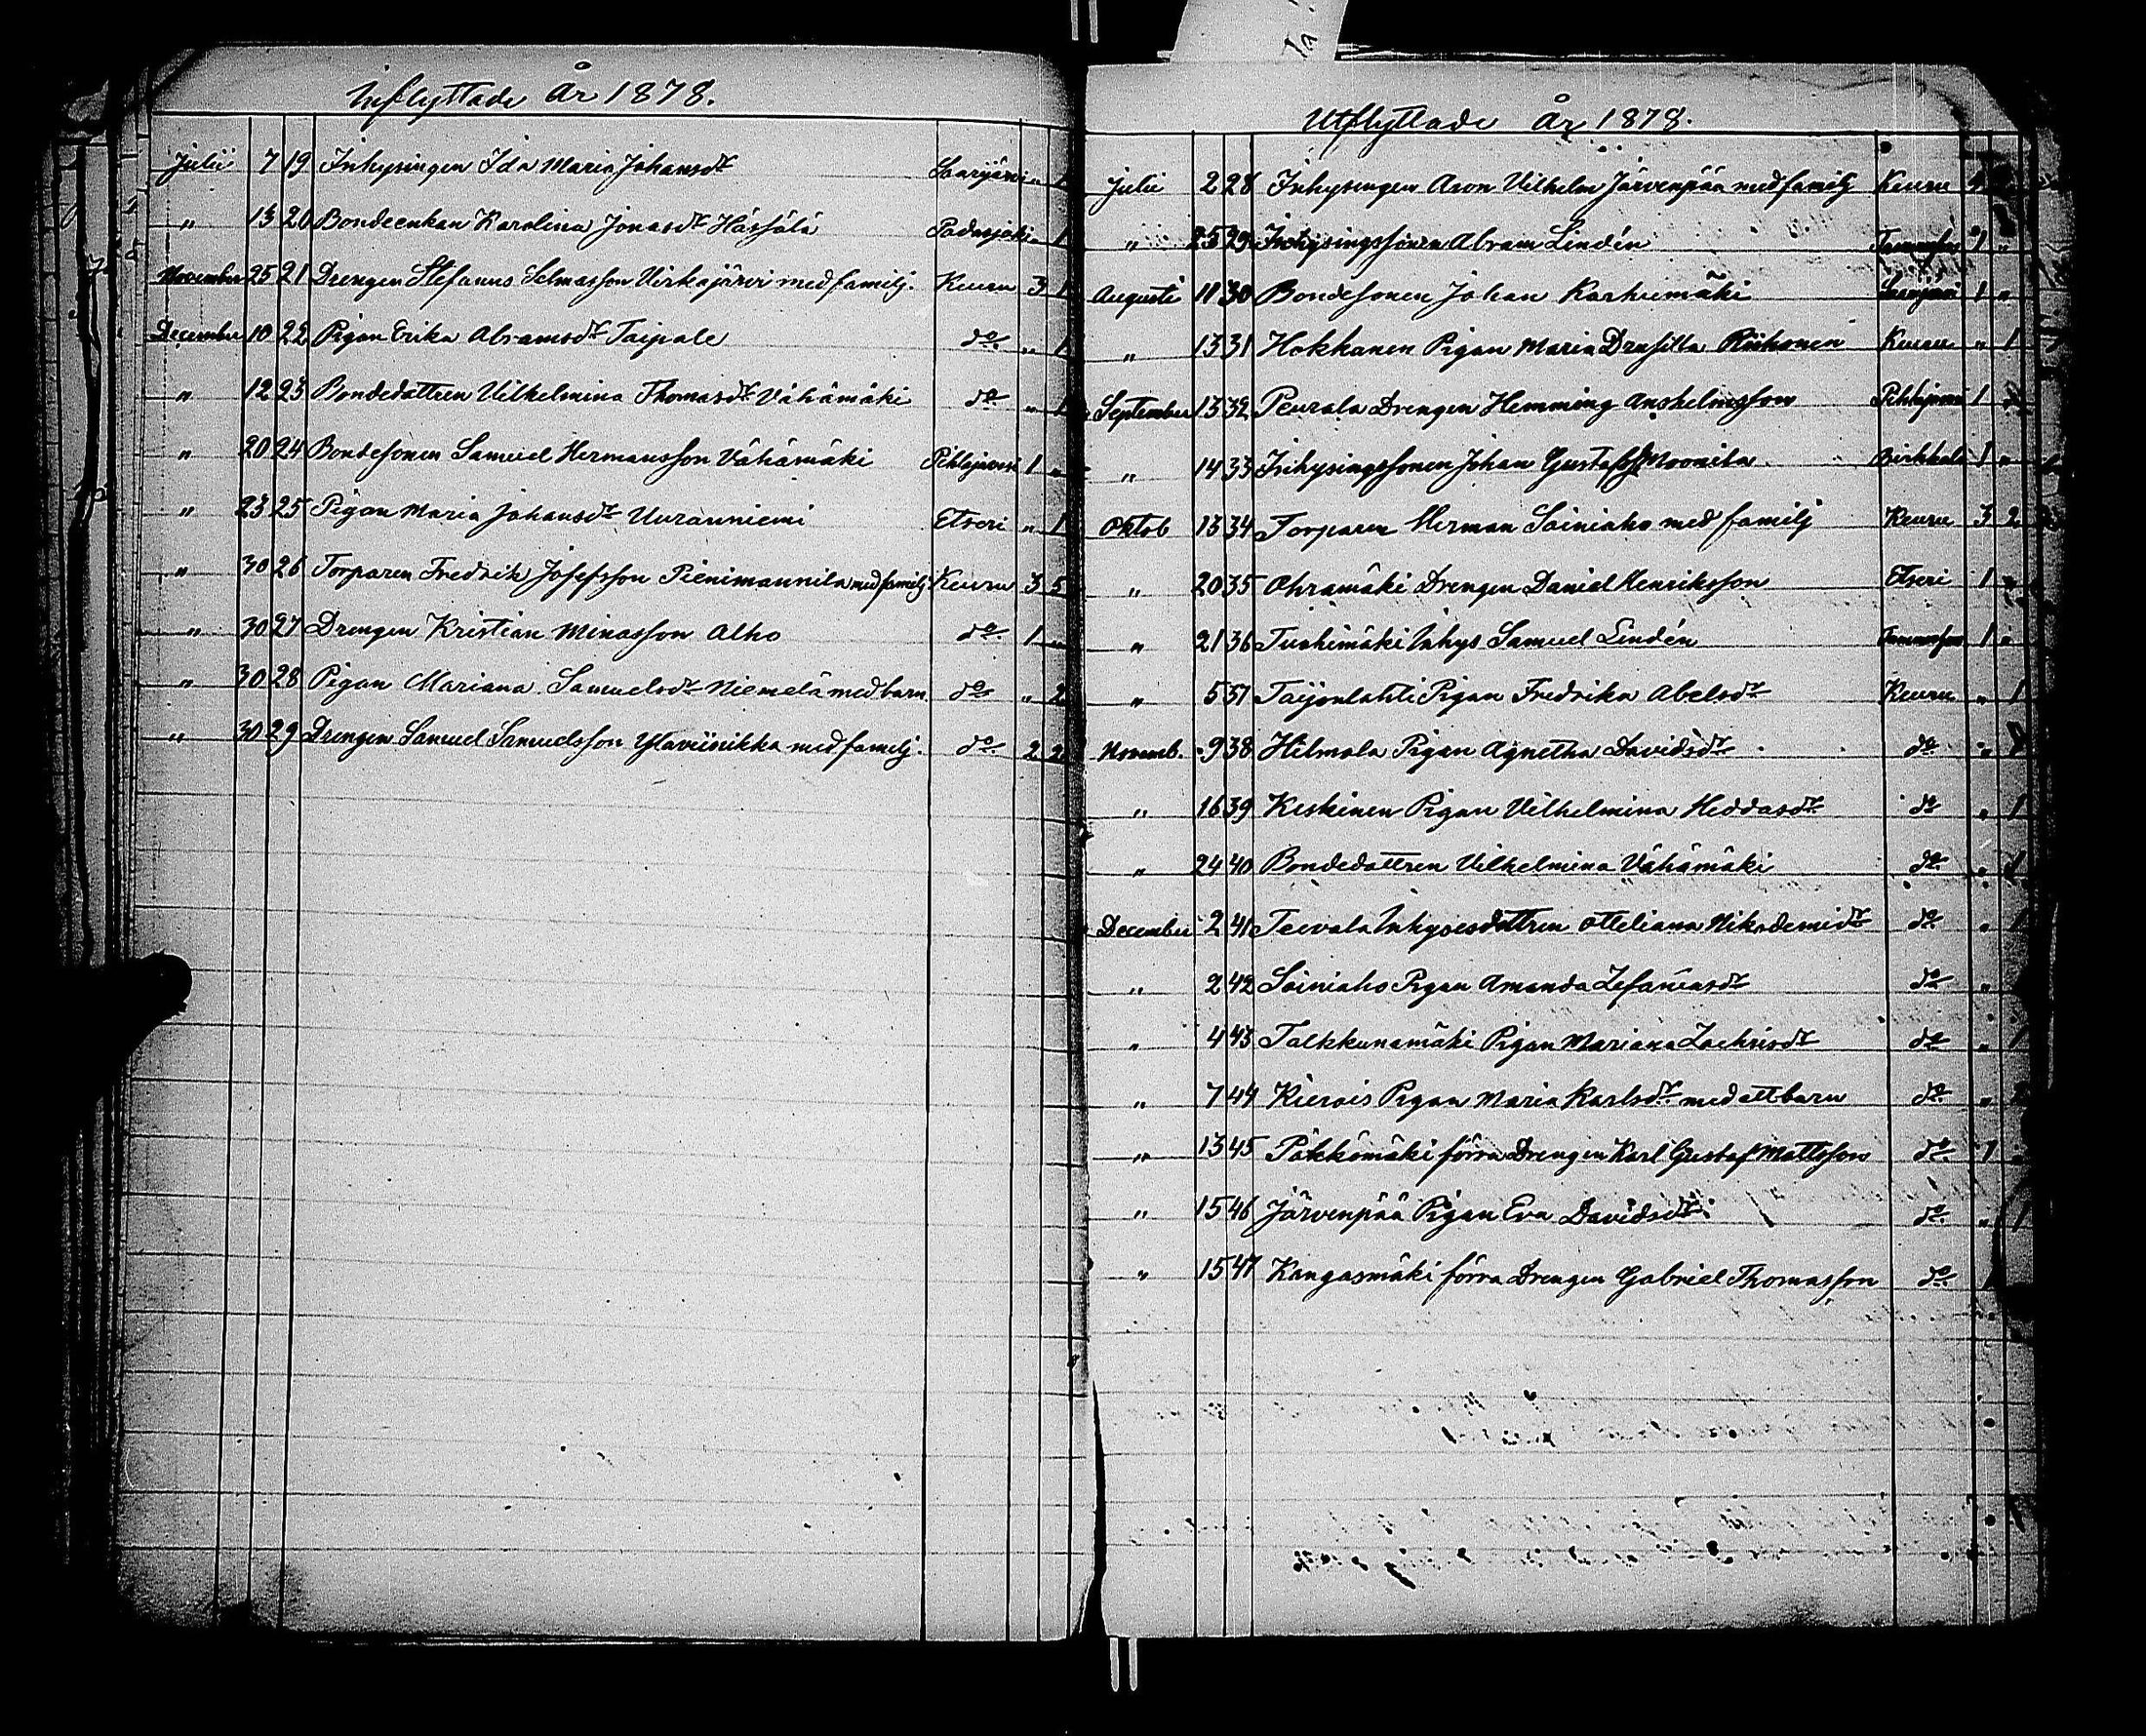 Inflyttade År 1878.
Julii 7 19 Inhysingen Ida Maria Johansdr Saarijärvi „ 1
„ 13 20 Bondeenkan Karolina Jonasdr Hässälä Padasjoki „ 1
November 25 21 Drengen Stefanus Selmasson Virkajärvi med familj. Keuru 3 1
December 10 22 Pigan Erika Abramsdr Taipale do „ 1
„ 12 23 Bondedottren Vilhelmina Thomasdr Vähämäki do „ 1
„ 20 24 Bondesonen Samuel Hermansson Vähämäki Pihlajavesi 1 „
„ 23 25 Pigan Maria Johansdr Uuranniemi Etseri „ 1
„ 30 26 Torparen Fredrik Josefsson Pienimunnila med familj Keuru 3 5
„ 30 27 Drengen Kristian Minasson Alho do 1 „
„ 30 28 Pigan Mariana Samuelsdr Niemelä med barn. do „ 2
„ 30 29 Drengen Samuel Samuelsson Ylaviisikka med familj. do 2 2
Utflyttade År 1878.
Julii 2 28 Inhysingen Aron Vilhelm Järvenpää med familj Keuru
„ 25 29 Inhysingssonen Abram Lindén Tammerfors 1 „
Augusti 11 30 Bondesonen Johan Karhumäki Saarijärvi 1 „
„ 13 31 Hokkanen Pigan Maria Drusilla Riihonen Keuru „ 1
September 13 32 Peurala Drengen Hemming Anshelmsson Pihlajavesi 1
„ 14 33 Inhysingssonen Johan Gustafss Moonila Birkkala 1 „
Oktob 13 34 Torparen Herman Soiniaho med familj Keuru 3 2
„ 20 35 Ohramäki Drengen Daniel Henriksson Etseri 1 „
„ 21 36 Tuohimäki Inhys Samuel Lindén Tammerfors 1 „
„ 5 37 Taijonlahti Pigan Fredrika Abelsdr Keuru „ 1
Novemb. 9 38 Hilmola Pigan Agnetha Davidsdr do „
„ 16 39 Keskinen Pigan Vilhelmina Heddasdr do „ 1
„ 24 40 Bondedottren Vilhelmina Vähämäki do „ 1
December 2 41 Teevala Inhysesdottren Otteliana Nikodemidr do „ 1
„ 2 42 Soiniaho Pigan Amanda Zefaniasdr do „
„ 4 43 Talkkunamäki Pigan Mariana Zachrisdr do „ 1
„ 7 44 Kierois Pigan Maria Karlsdr med ett barn do „ 2
„ 13 45 Päkkömäki förra Drengen Karl Gustaf Mattsson do 1
„ 15 46 Järvenpää Pigan Eva Davidsdr do „ 1
„ 15 47 Kangasmäki förra Drengen Gabriel Thomasson do 1